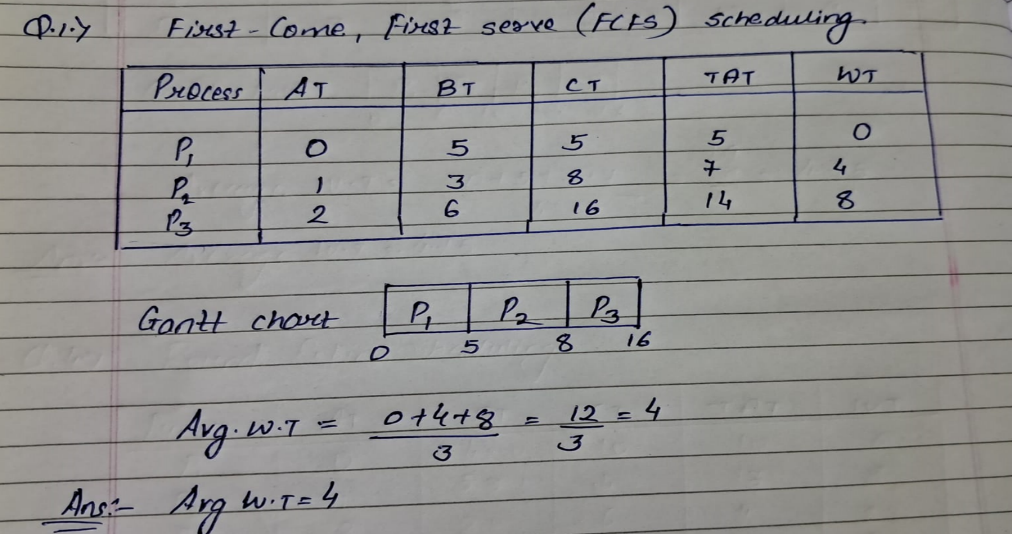 Q.1.> First-Come, First serve (FCFS) scheduling.
Process AT BT CT TAT WT
P1 0 5 5 5 0
P2 1 3 8 7 4
P3 2 6 16 14 8
Gantt chart P1 P2 P3
0 5 8 16
Avg. W.T = 0+4+8/3 = 12/3 = 4
Ans:- Avg W.T = 4